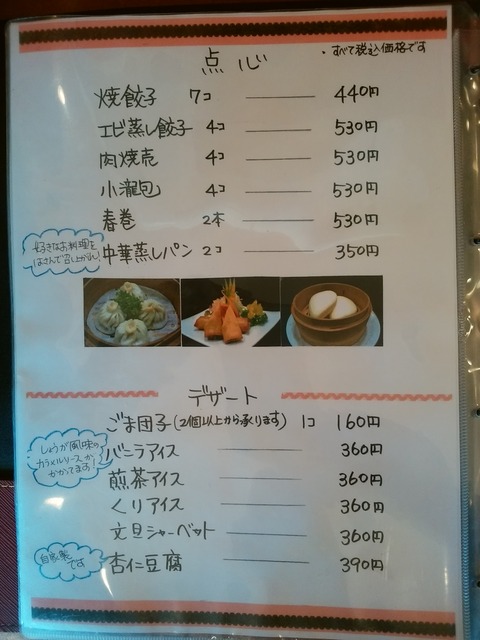 点心
・すべて税込価格です
焼餃子 7コ 440円
エビ蒸し餃子 4コ 530円
肉焼売 4コ 530円
小瀧包 4コ 530円
春巻 2本 530円
好きなお料理を
はさんで召し上がれ
中華蒸しパン 2コ 350円
デザート
ごま団子(2個以上から承ります) 1コ 160円
バニラアイス 360円
しょうが風味の
カラメルソースが
かかってます!
煎茶アイス 360円
くりアイス 360円
文旦シャーベット 360円
自家製
です
杏仁豆腐 390円